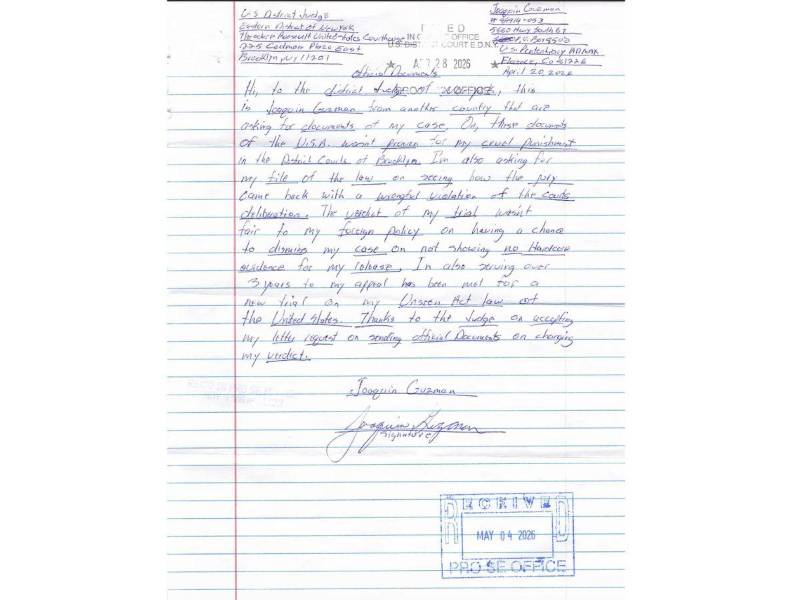 U.S District Judge
Eastern District of New York
Theodore Roosevelt United States Courthouse
225 Cadman Plaza East
Brooklyn NY 11201
Joaquin Guzman
5880 Hwy South 67
U.S. Penitentiary ADMAX
Florence, Co 81226
April 20, 2026
FILED
IN CLERK'S OFFICE
U.S. DISTRICT COURT E.D.N.Y.
★ APR 28 2026 ★
BROOKLYN OFFICE
Official Documents
Hi, to the district Judge of, this
is Joaquin Guzman from another country that are
asking for documents of my case. On, those documents
of the U.S.A. wasn't proven for my cruel punishment
in the District Courts of Brooklyn. I'm also asking for
my file of the law on seeing how the jury
came back with a wrongful violation of the courts
deliberation. The verdict of my trial wasn't
fair to my foreign policy on having a chance
to dismiss my case on not showing no Hardcore
evidence for my release. I'm also serving over
3 years to my appeal has been met for a
new trial on my Unseen Act law of
the United States. Thanks to the Judge on accepting
my letter request on sending official Documents on changing
my verdict.
Joaquin Guzman
Joaquin Guzman
Signature
RECEIVED
MAY 04 2026
PRO SE OFFICE